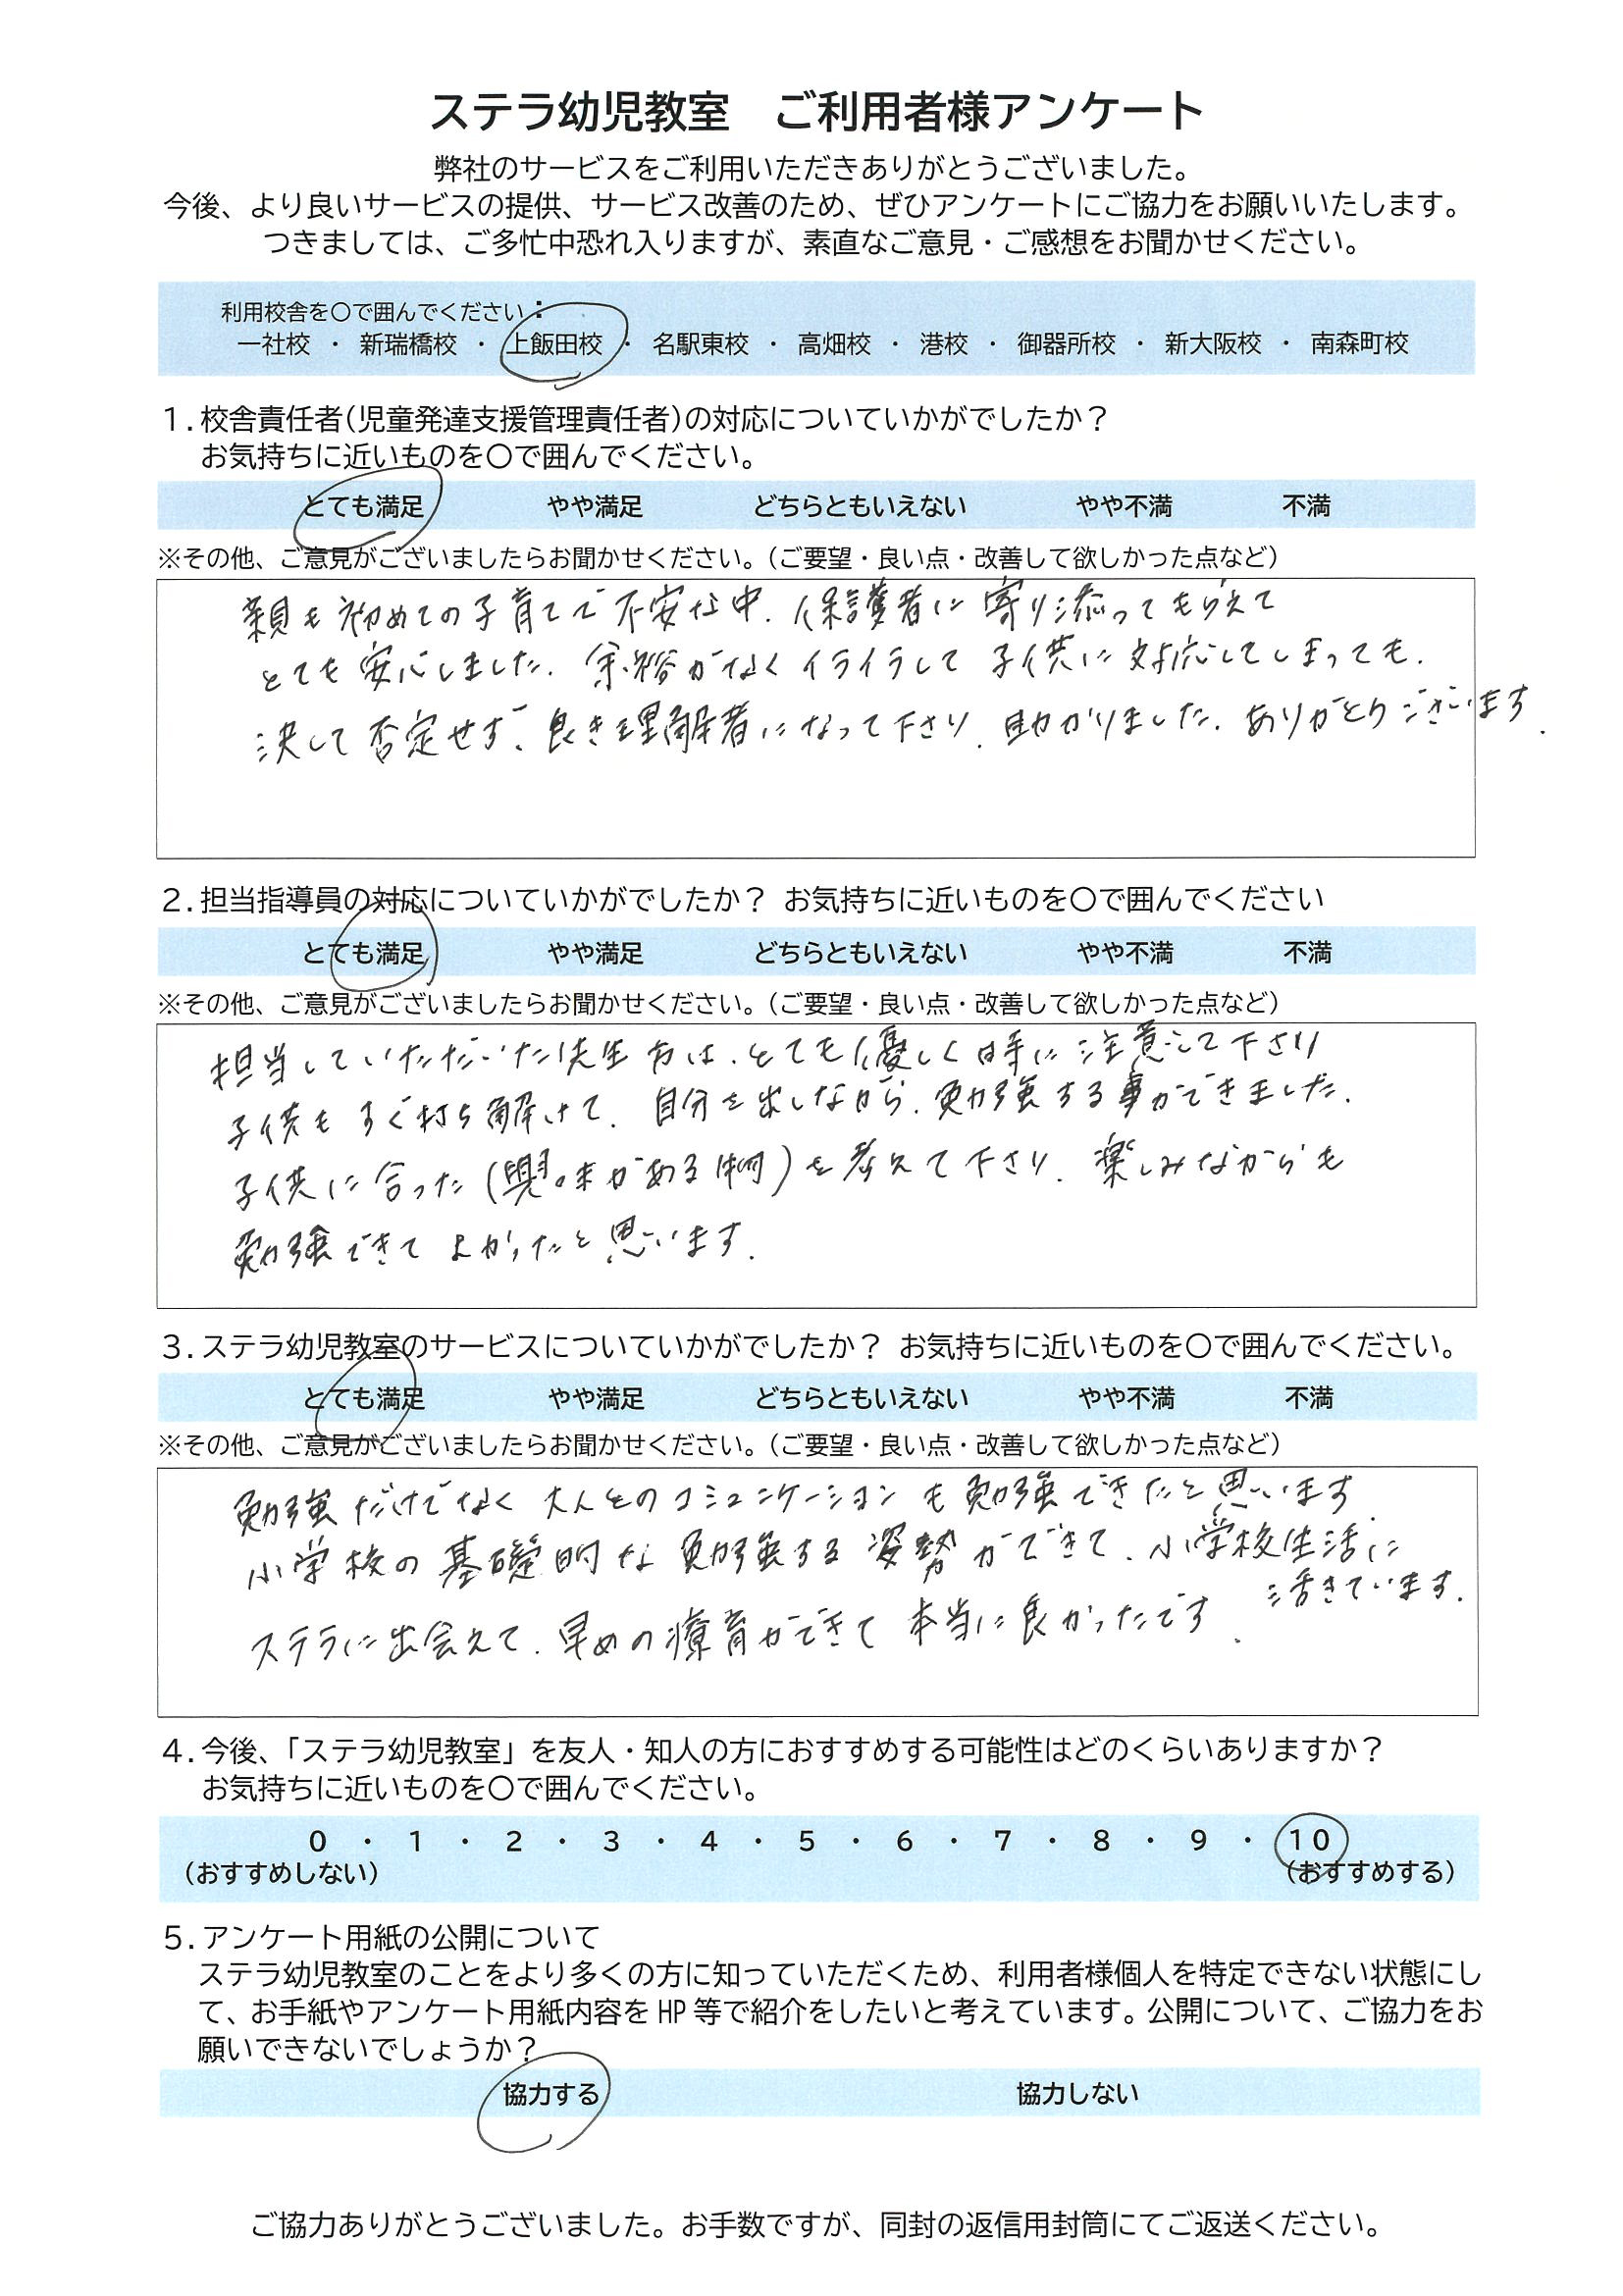 ステラ幼児教室　ご利用者様アンケート
弊社のサービスをご利用いただきありがとうございました。
今後、より良いサービスの提供、サービス改善のため、ぜひアンケートにご協力をお願いいたします。
つきましては、ご多忙中恐れ入りますが、素直なご意見・ご感想をお聞かせください。
利用校舎を〇で囲んでください：
一社校 ・ 新瑞橋校 ・ 上飯田校 ・ 名駅東校 ・ 高畑校 ・ 港校 ・ 御器所校 ・ 新大阪校 ・ 南森町校
１．校舎責任者（児童発達支援管理責任者）の対応についていかがでしたか？
お気持ちに近いものを〇で囲んでください。
とても満足　やや満足　どちらともいえない　やや不満　不満
※その他、ご意見がございましたらお聞かせください。（ご要望・良い点・改善して欲しかった点など）
親も初めての子育てで不安な中、保護者に寄り添ってもらえて
とても安心しました。余裕がなくイライラして子供に対応してしまっても、
決して否定せず、良き理解者になって下さり、助かりました。ありがとうございます。
２．担当指導員の対応についていかがでしたか？ お気持ちに近いものを〇で囲んでください
とても満足　やや満足　どちらともいえない　やや不満　不満
※その他、ご意見がございましたらお聞かせください。（ご要望・良い点・改善して欲しかった点など）
担当していただいた先生方は、とても優しく時に注意して下さり
子供もすぐ打ち解けて、自分を出しながら、勉強する事ができました。
子供に合った（興味がある物）を考えて下さり、楽しみながらも
勉強できてよかったと思います。
３．ステラ幼児教室のサービスについていかがでしたか？ お気持ちに近いものを〇で囲んでください。
とても満足　やや満足　どちらともいえない　やや不満　不満
※その他、ご意見がございましたらお聞かせください。（ご要望・良い点・改善して欲しかった点など）
勉強だけでなく大人とのコミュニケーションも勉強できたと思います
小学校の基礎的な勉強する姿勢ができて、小学校生活に
活きています。
ステラに出会えて、早めの療育ができて本当に良かったです。
４．今後、「ステラ幼児教室」を友人・知人の方におすすめする可能性はどのくらいありますか？
お気持ちに近いものを〇で囲んでください。
０ ・ １ ・ ２ ・ ３ ・ ４ ・ ５ ・ ６ ・ ７ ・ ８ ・ ９ ・ １０
（おすすめしない）　（おすすめする）
５．アンケート用紙の公開について
ステラ幼児教室のことをより多くの方に知っていただくため、利用者様個人を特定できない状態にし
て、お手紙やアンケート用紙内容を HP 等で紹介をしたいと考えています。公開について、ご協力をお
願いできないでしょうか？
協力する　協力しない
ご協力ありがとうございました。お手数ですが、同封の返信用封筒にてご返送ください。